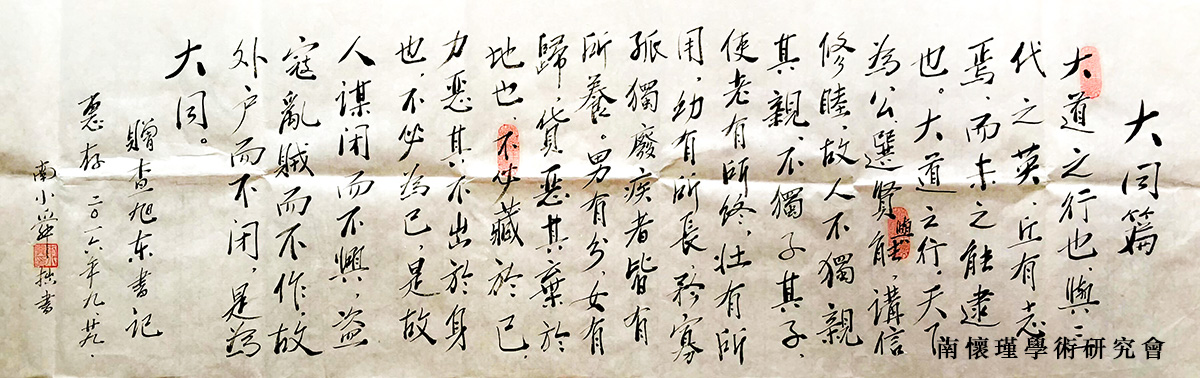 大同篇
大道之行也,與三
代之英,丘有志
焉,而未之能逮
也。大道之行,天下
為公,選賢與能,講信
修睦,故人不獨親
其親,不獨子其子,
使老有所終,壯有所
用,幼有所長,矜寡
孤獨廢疾者皆有
所養。男有分,女有
歸,貨惡其棄於
地也,不必藏於己,
力惡其不出於身
也,不必為己,是故
人謀闭而不興,盜
寇亂賊而不作,故
外户而不闭,是為
大同。
贈查旭东書記
惠存 二〇一六年九、廿九、
南小舜 拙书
南懷瑾學術研究會